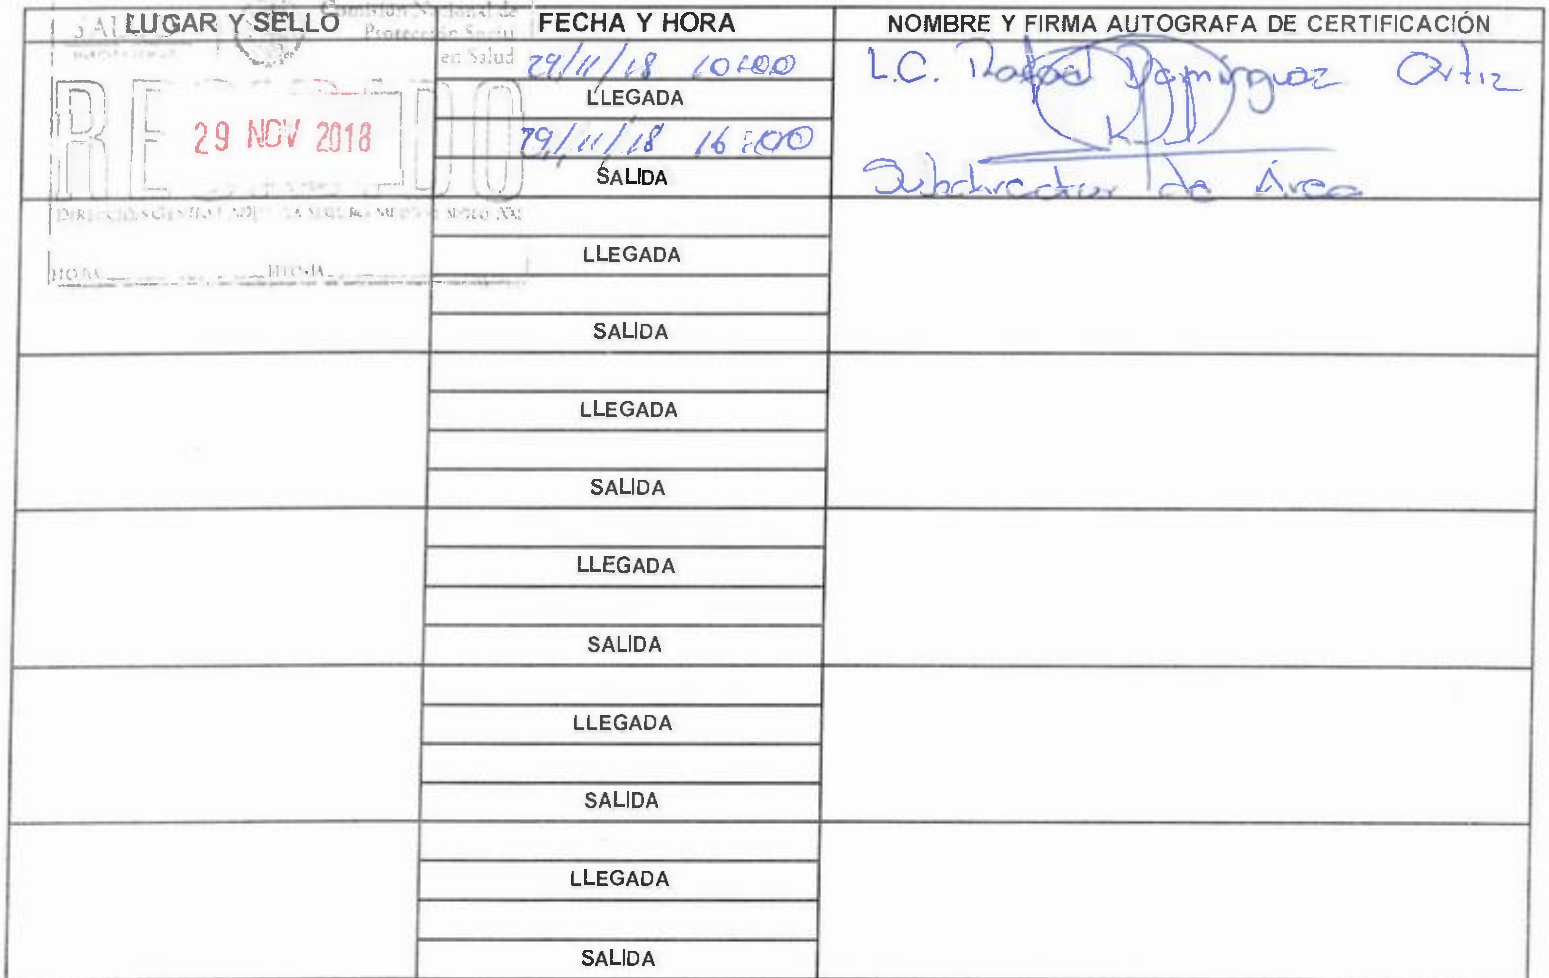 LUGAR Y SELLO
FECHA Y HORA
NOMBRE Y FIRMA AUTOGRAFA DE CERTIFICACIÓN
SALUD
Comisión Nacional de
Protección Social
en Salud
29 NOV 2018
DIRECCIÓN SEGURO MÉDICO SIGLO XXI
HORA FIRMA
29/11/18 10:00
LLEGADA
29/11/18 16:00
SALIDA
L.C. Rafael Domínguez Ortiz
Subdirector de Área
LLEGADA
SALIDA
LLEGADA
SALIDA
LLEGADA
SALIDA
LLEGADA
SALIDA
LLEGADA
SALIDA